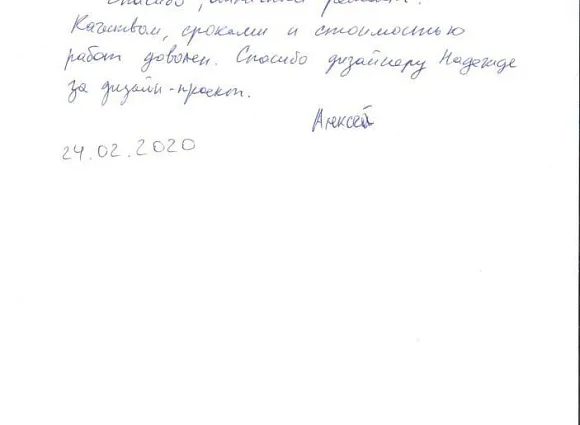 Качеством, сроками и стоимостью
работ доволен. Спасибо дизайнеру Надежде
за дизайн-проект.
Алексей
24.02.2020